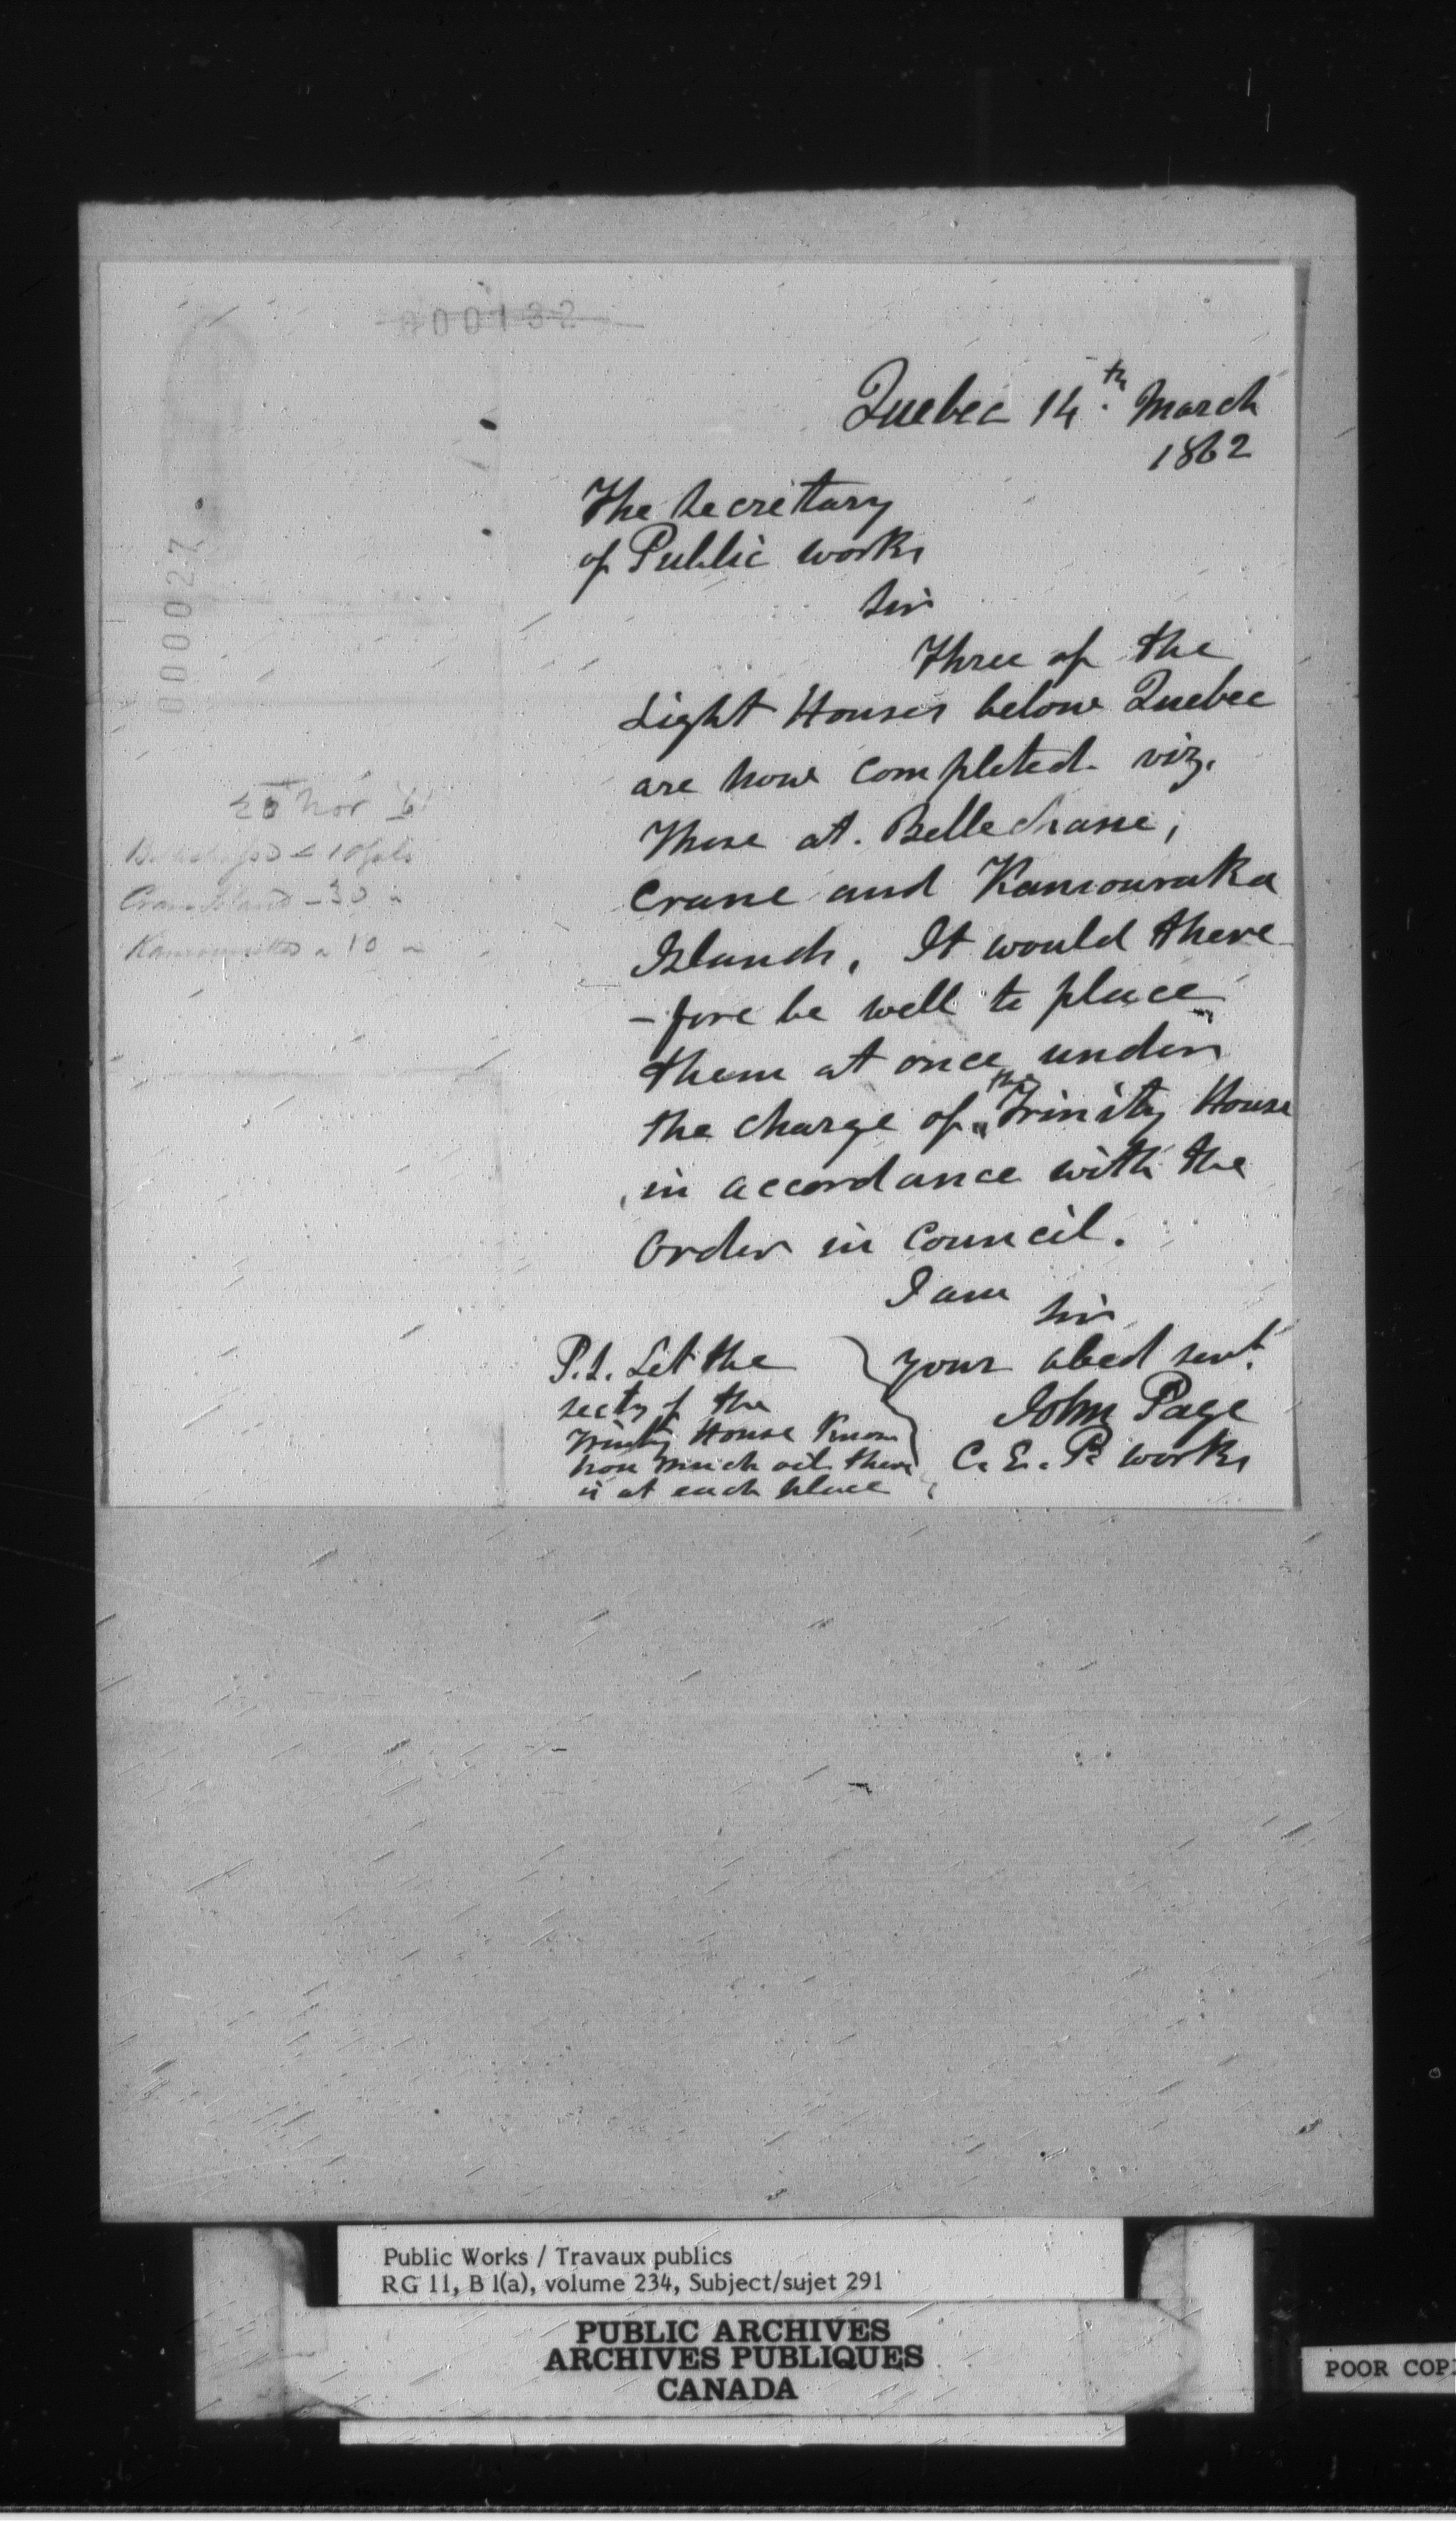 000132
Quebec 14th. March
1862
The Secretary
of Public works
Sir
Three of the
Light Houses below Quebec
are now completed. viz.
Those at. Bellechasse,
Crane and Kamouraska
Islands, It would there
-fore be well to place
them at once under
the charge of the Trinity House
in accordance with the
Order in Council.
I am
Sir
your obed servt.
John Page
C. E. P. works
P.S. Let the
secty of the
Trinity House Know
how much oil there
is at each place
000027
Nov 61
Crane Island - 30 "
10 "
Public Works / Travaux publics
RG 11, B 1(a), volume 234, Subject/sujet 291
PUBLIC ARCHIVES
ARCHIVES PUBLIQUES
CANADA
POOR COP